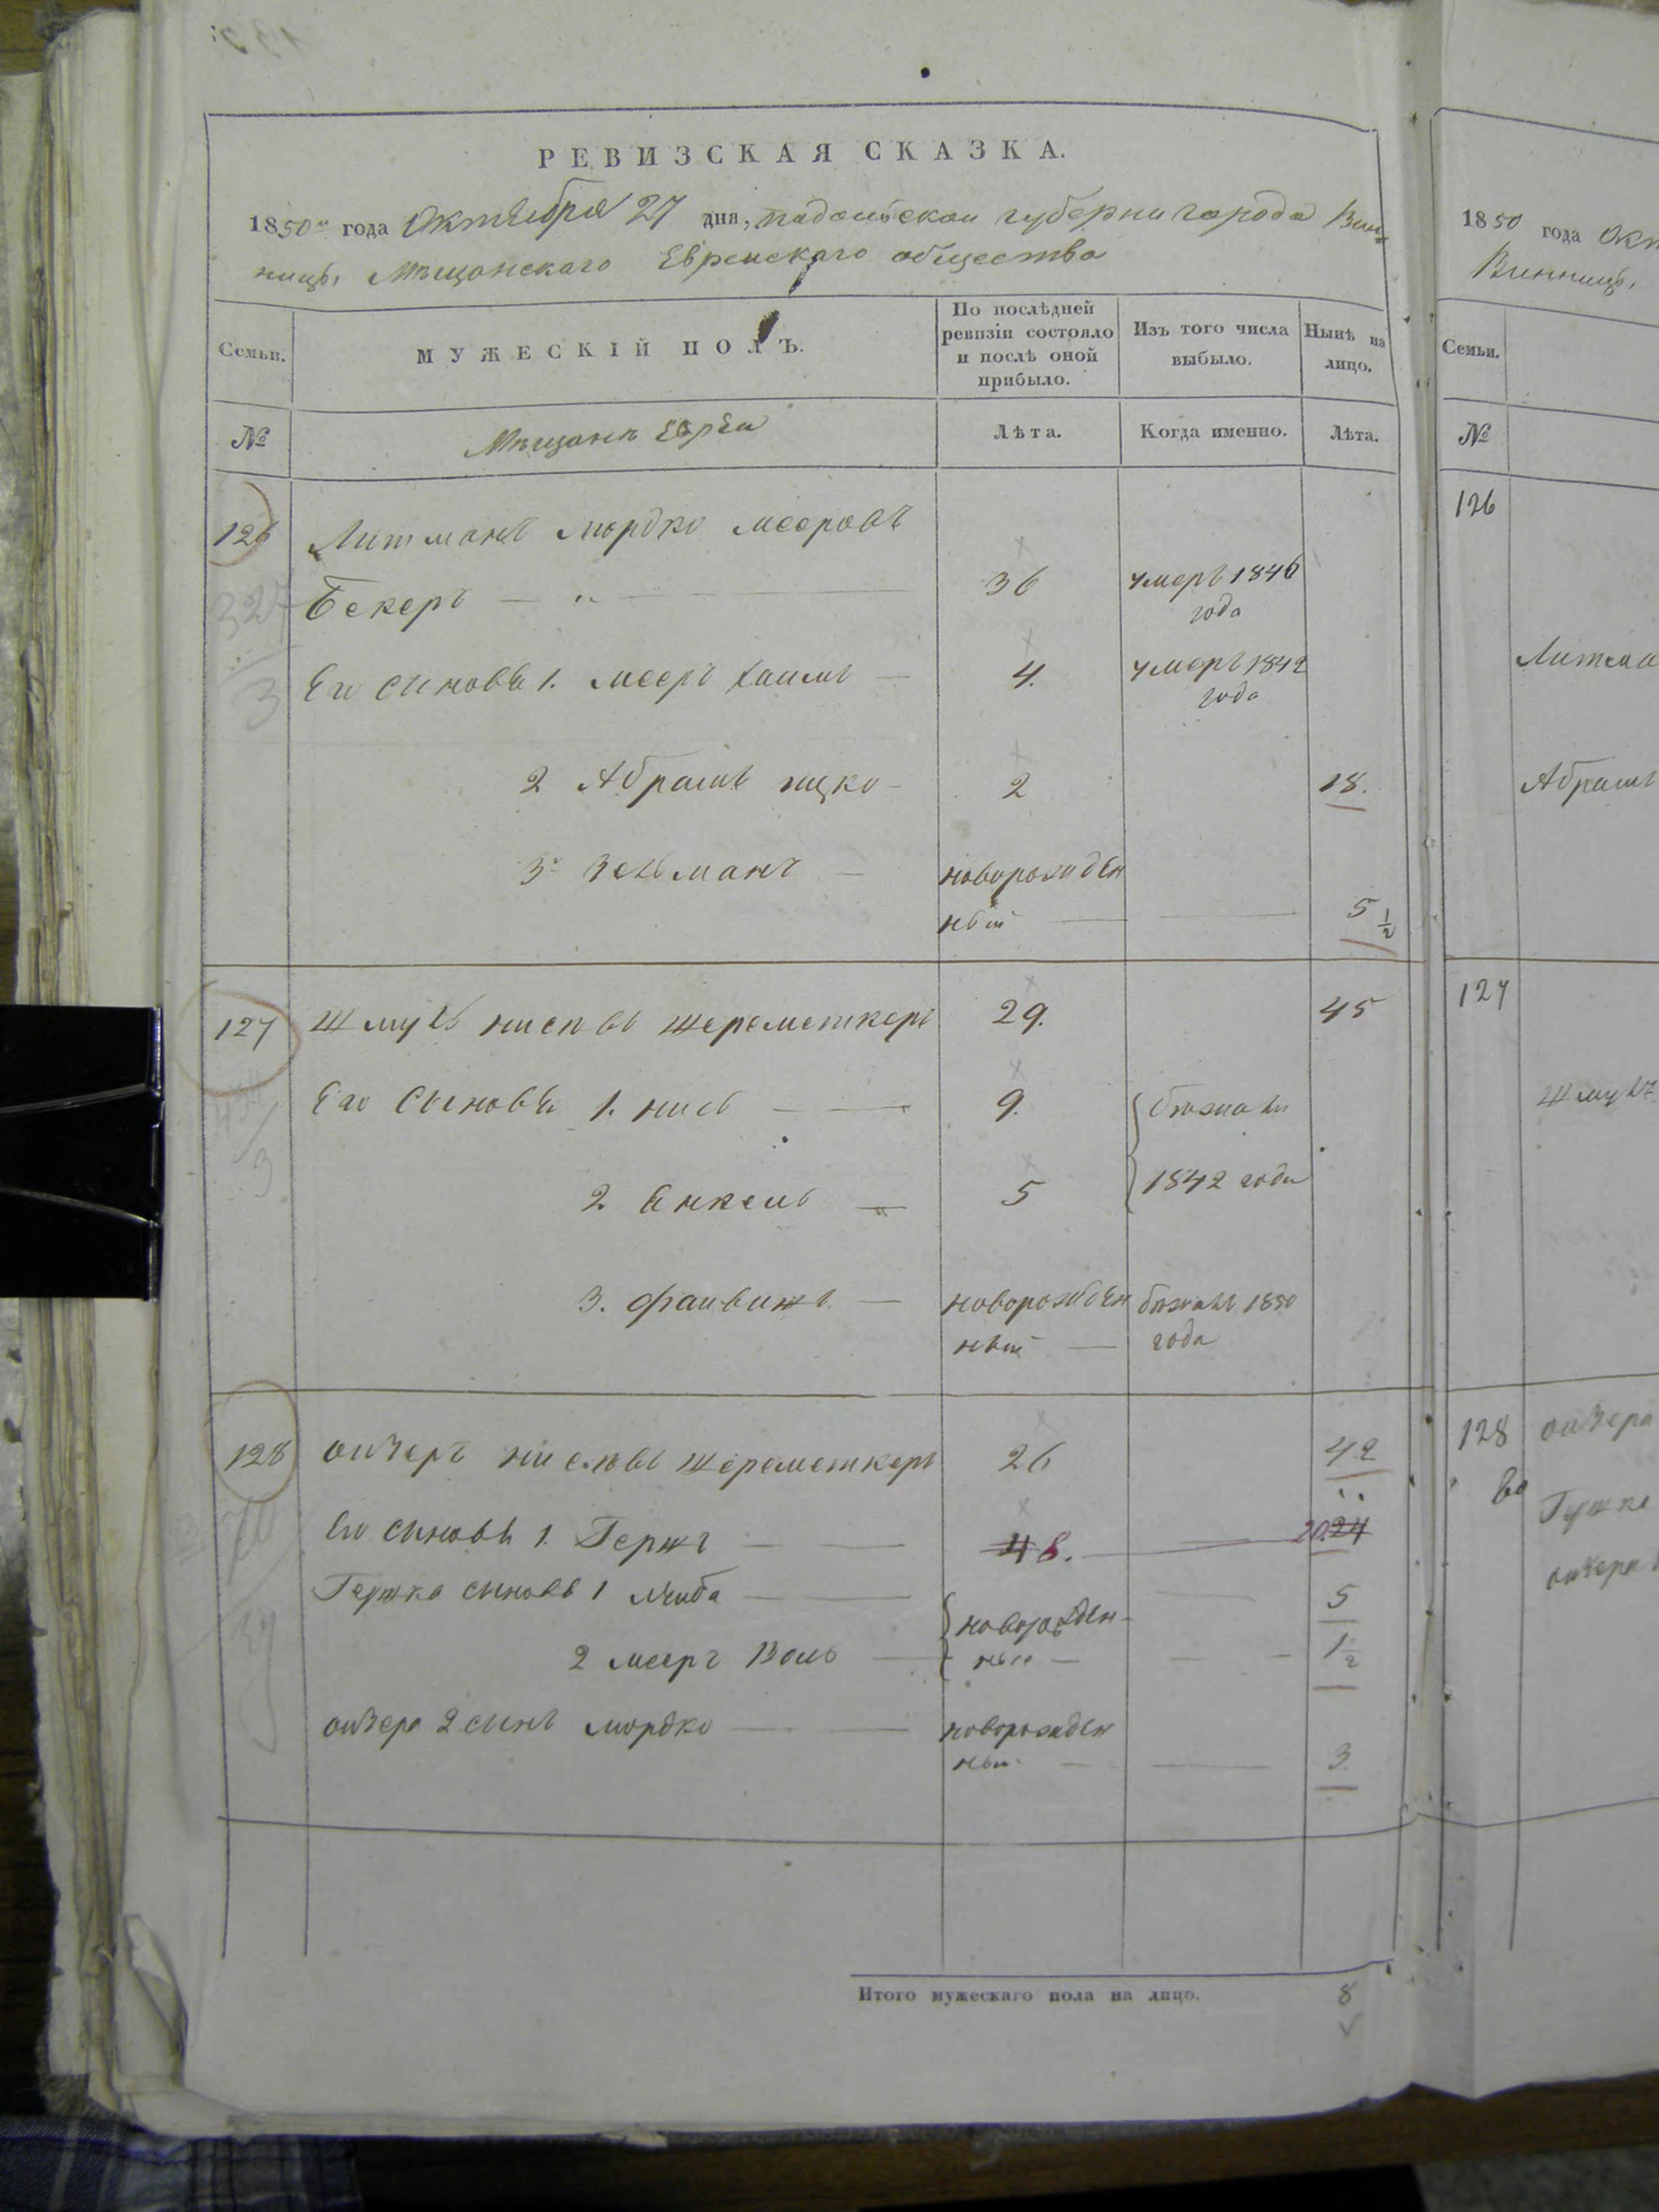 РЕВИЗСКАЯ СКАЗКА.
1850го года Октября 27 дня, Падольской губерни города Вин-
ницы, Мѣщанскаго Еврейскаго общества
Семьи.
МУЖЕСКІЙ ПОЛЪ.
По послѣдней ревизіи состояло и послѣ оной прибыло.
Изъ того числа выбыло.
Нынѣ на лицо.
№
Мѣщанъ Евреи
Лѣта.
Когда именно.
Лѣта.
126 Литманъ Мордко Мееровъ
Бекеръ — „ — 36 умеръ 1846 года
Его сыновья 1. Мееръ Хаимъ — 4. умеръ 1842 года
2 Абрамъ Ицко — 2 18.
3. Зельманъ — новорожден
ный — — 5 1/2
127 Шмуль Нисовъ Шереметкеръ 29. 45
Его Сыновья 1. Нись — — 9. бѣжали
2. Янкель — 5 1842 года
3. Файвишъ — новорожден бѣжалъ 1850
ный — года
128 Ойзеръ Нисовъ Шереметкеръ 26 42
Его сыновья 1. Гершъ — — 4 8. — 20. 24
Гершка сыновья 1 Лейба — 5
новорожден-
2 Мееръ Воль — ные — — — 1 1/2
Ойзера 2 сынъ Мордко — — новорожден
ный — — 3.
Итого мужескаго пола на лицо. 8
1850 года Окт
Винницы,
Семьи.
№
126
Литма
Абрамъ
127
Шмуля
128 Ойзера
Гершка
Ойзера